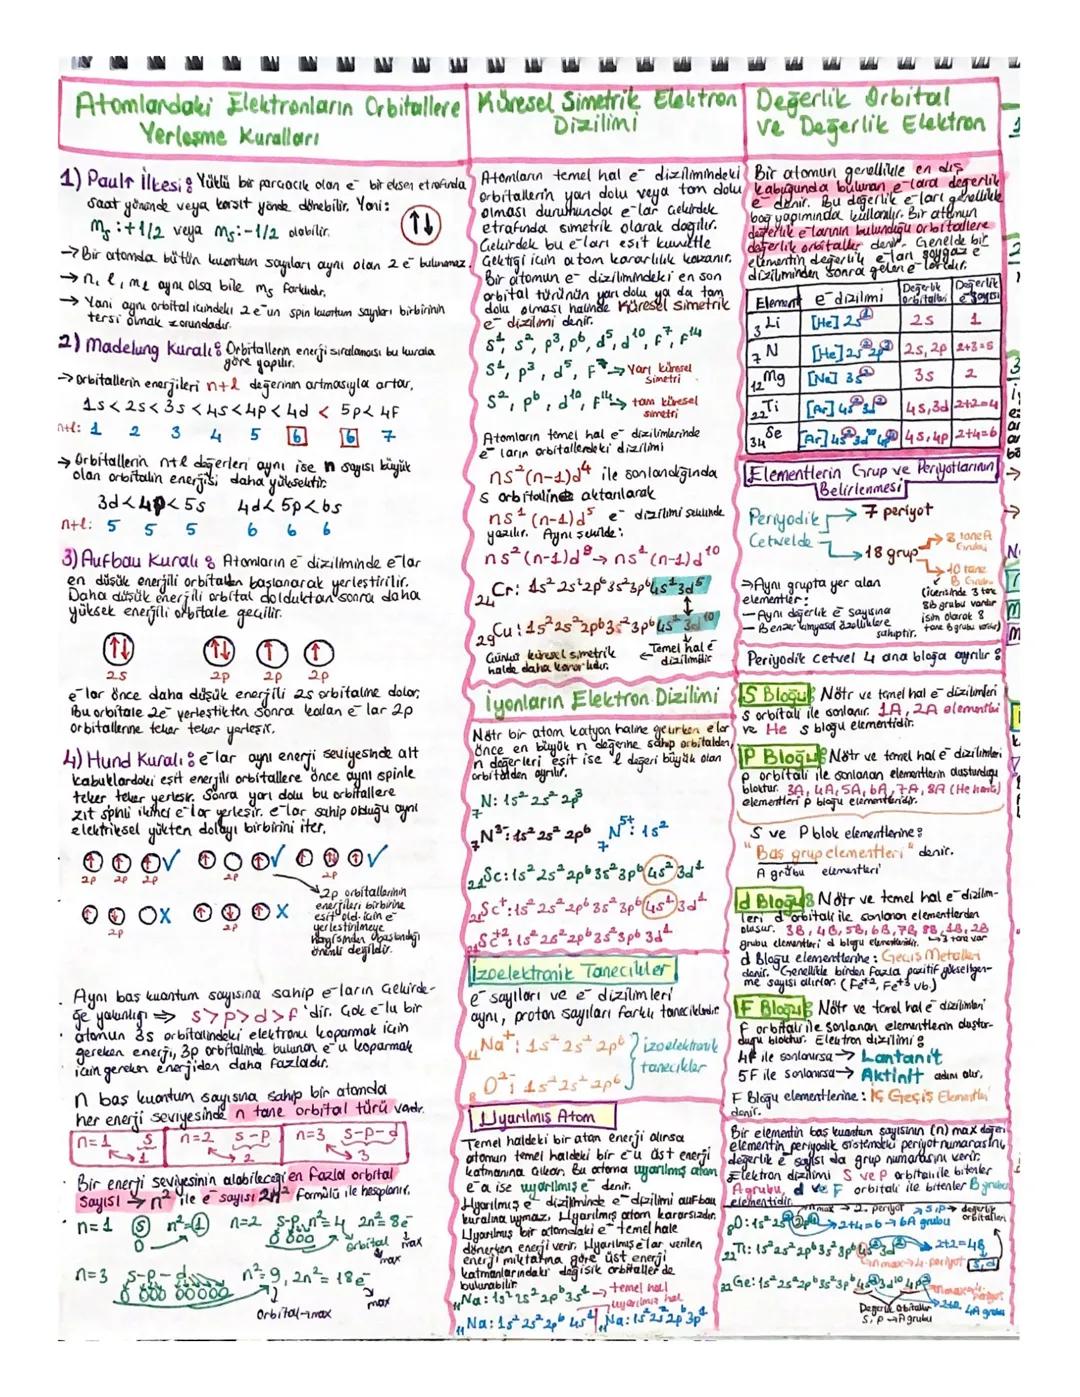 Atomlardaki Elektronların Orbitallere
Yerleşme Kuralları
1) Paulı İlkesi: Yüklü bir parçacık olan e⁻ bir eksen etrafında
saat yönünde veya karşıt yönde dönebilir. Yani:
Ms: +1/2 veya Ms: -1/2 olabilir.
→ Bir atomda bütün kuantum sayıları aynı olan 2 e⁻ bulunmaz.
→ n, l, ml aynı olsa bile ms farklıdır.
→ Yani aynı orbital içindeki 2 e⁻un spin kuantum sayıları birbirinin
tersi olmak zorundadır.
2) Madelung Kuralı: Orbitallerin enerji sıralaması bu kurala
göre yapılır.
→ Orbitallerin enerjileri n+l değerinin artmasıyla artar,
1s < 2s < 3s < 4s < 4p < 4d < 5p < 4F
n+l: 1 2 3 4 5 6 6 7
→ Orbitallerin n+l değerleri aynı ise n sayısı büyük
olan orbitalin enerjisi daha yüksektir.
3d < 4p < 5s 4d < 5p < 6s
n+l: 5 5 5 6 6 6
3) Aufbau Kuralı: Atomların e⁻ diziliminde e⁻lar
en düşük enerjili orbitalden başlanarak yerleştirilir.
Daha düşük enerjili orbital dolduktan sonra daha
yüksek enerjili orbitale geçilir.
2s 2p 2p 2p
e⁻lar önce daha düşük enerjili 2s orbitaline dolar,
Bu orbitale 2e⁻ yerleştikten sonra kalan e⁻lar 2p
orbitallerine teker teker yerleşir.
4) Hund Kuralı: e⁻lar aynı enerji seviyesinde alt
kabuklardaki eşit enerjili orbitallere önce aynı spinle
teker teker yerleşir. Sonra yarı dolu bu orbitallere
zıt spinli ikinci e⁻lar yerleşir. e⁻lar sahip olduğu aynı
elektriksel yükten dolayı birbirini iter.
2p 2p 2p 2p 2p
2p 2p
2p orbitallerinin
enerjileri birbirine
eşit old. için e⁻
yerleştirilmeye
hangisinden başlandığı
önemli değildir.
Aynı baş kuantum sayısına sahip e⁻ların çekirde-
ğe yakınlığı ⇒ s>p>d>f 'dir. Çok e⁻lu bir
atomun 3s orbitalindeki elektronu koparmak için
gereken enerji, 3p orbitalinde bulunan e⁻u koparmak
için gereken enerjiden daha fazladır.
n baş kuantum sayısına sahip bir atomda
her enerji seviyesinde n tane orbital türü vardır.
n=1 s 1 n=2 s-p 2 n=3 s-p-d 3
Bir enerji seviyesinin alabileceği en fazla orbital
sayısı → n² ile e⁻ sayısı 2n² formülü ile hesaplanır.
n=1 s n²=1 n=2 s-p n²=4 2n²=8e⁻
orbital max max
n=3 s-p-d n²=9, 2n²=18e⁻
orbital→max max
Küresel Simetrik Elektron
Dizilimi
Atomların temel hal e⁻ dizilimindeki
orbitallerin yarı dolu veya tam dolu
olması durumunda e⁻lar çekirdek
etrafında simetrik olarak dağılır.
Çekirdek bu e⁻ları eşit kuvvetle
çektiği için atom kararlılık kazanır.
Bir atomun e⁻ dizilimindeki en son
orbital türünün yarı dolu ya da tam
dolu olması halinde Küresel Simetrik
e⁻ dizilimi denir.
s¹, s², p³, p⁶, d⁵, d¹⁰, f⁷, f¹⁴
s¹, p³, d⁵, F⁷ → Yarı küresel
simetri
s², p⁶, d¹⁰, F¹⁴ → tam küresel
simetri
Atomların temel hal e⁻ dizilimlerinde
e⁻ların orbitallerdeki dizilimi
ns²(n-1)d⁴ ile sonlandığında
s orbitalinde aktarılarak
ns¹(n-1)d⁵ e⁻ dizilimi şeklinde
yazılır. Aynı şekilde:
ns²(n-1)d⁹ → ns¹(n-1)d¹⁰
24Cr: 1s² 2s² 2p⁶ 3s² 3p⁶ 4s¹ 3d⁵
29Cu: 1s² 2s² 2p⁶ 3s² 3p⁶ 4s¹ 3d¹⁰
Çünkü küresel simetrik
halde daha kararlıdır.
← Temel hal e⁻
dizilimidir
İyonların Elektron Dizilimi
Nötr bir atom katyon haline geçerken e⁻lar
önce en büyük n değerine sahip orbitalden,
n değerleri eşit ise l değeri büyük olan
orbitalden ayrılır.
7N: 1s² 2s² 2p³
7N³⁻: 1s² 2s² 2p⁶ 7N⁵⁺: 1s²
21Sc: 1s² 2s² 2p⁶ 3s² 3p⁶ 4s² 3d¹
21Sc⁺: 1s² 2s² 2p⁶ 3s² 3p⁶ 4s¹ 3d¹
21Sc⁺²: 1s² 2s² 2p⁶ 3s² 3p⁶ 3d¹
İzoelektronik Tanecikler
e⁻ sayıları ve e⁻ dizilimleri
aynı, proton sayıları farklı taneciklerdir
11Na⁺: 1s² 2s² 2p⁶ } izoelektronik
8O²⁻: 1s² 2s² 2p⁶ tanecikler
Uyarılmış Atom
Temel haldeki bir atom enerji alırsa
atomun temel haldeki bir e⁻u üst enerji
katmanına çıkar. Bu atoma uyarılmış atom
e⁻a ise uyarılmış e⁻ denir.
Uyarılmış e⁻ diziliminde e⁻ dizilimi aufbau
kuralına uymaz, Uyarılmış atom kararsızdır.
Uyarılmış bir atomdaki e⁻ temel hale
dönerken enerji verir. Uyarılmış e⁻lar verilen
enerji miktarına göre üst enerji
katmanlarındaki değişik orbitallerde
bulunabilir
11Na: 1s² 2s² 2p⁶ 3s¹ → temel hal
uyarılmış hal
11Na: 1s² 2s² 2p⁶ 4s¹ 11Na: 1s² 2s² 2p⁶ 3p¹
Değerlik Orbital
ve Değerlik Elektron
Bir atomun genellikle en dış
kabuğunda bulunan e⁻lara değerlik
e⁻ denir. Bu değerlik e⁻ları genellikle
bağ yapımında kullanılır. Bir atomun
değerlik e⁻larının bulunduğu orbitallere
değerlik orbitaller denir. Genelde bir
elementin değerlik e⁻ları soygaz e⁻
diziliminden sonra gelen e⁻lardır.
Element e⁻ dizilimi Değerlik orbitalleri Değerlik e⁻ sayısı
3Li [He] 2s¹ 2s 1
7N [He] 2s² 2p³ 2s, 2p 2+3=5
12Mg [Ne] 3s² 3s 2
22Ti [Ar] 4s² 3d² 4s, 3d 2+2=4
34Se [Ar] 4s² 3d¹⁰ 4p⁴ 4s, 4p 2+4=6
Elementlerin Grup ve Periyotlarının
Belirlenmesi
Periyodik → 7 periyot
Cetvelde → 18 grup → 8 tane A Grubu
→ 10 tane B Grubu
(içerisinde 3 tane
8B grubu vardır
isim olarak 8
tane B grubu vardır)
⇒ Aynı grupta yer alan
elementler:
— Aynı değerlik e⁻ sayısına
— Benzer kimyasal özelliklere
sahiptir.
Periyodik cetvel 4 ana bloğa ayrılır:
S Bloğu: Nötr ve temel hal e⁻ dizilimleri
s orbitali ile sonlanır. 1A, 2A elementleri
ve He s bloğu elementidir.
P Bloğu: Nötr ve temel hal e⁻ dizilimleri
p orbitali ile sonlanan elementlerin oluşturduğu
bloktur. 3A, 4A, 5A, 6A, 7A, 8A (He hariç)
elementleri p bloğu elementleridir.
S ve P blok elementlerine:
"Baş grup elementleri" denir.
A grubu elementleri
d Bloğu: Nötr ve temel hal e⁻ dizilim-
leri d orbitali ile sonlanan elementlerden
oluşur. 3B, 4B, 5B, 6B, 7B, 8B, 1B, 2B
grubu elementleri d bloğu elementleridir. → 3 tane var
d Bloğu elementlerine: Geçiş Metalleri
denir. Genellikle birden fazla pozitif yükseltgen-
me sayısı alırlar. (Fe⁺², Fe⁺³ vb.)
F Bloğu: Nötr ve temel hal e⁻ dizilimleri
F orbitali ile sonlanan elementlerin oluştur-
duğu bloktur. Elektron dizilimi:
4F ile sonlanırsa → Lantanit
5F ile sonlanırsa → Aktinit adını alır.
F Bloğu elementlerine: İç Geçiş Elementleri
denir.
Bir elementin baş kuantum sayısının (n) max değeri
elementin periyodik sistemdeki periyot numarasını,
değerlik e⁻ sayısı da grup numarasını verir.
Elektron dizilimi S ve P orbitali ile bitenler
A grubu, d ve F orbitali ile bitenler B grubu
elementidir.
nmax → 2. periyot → s,p → değerlik
orbitalleri
8O: 1s² 2s² 2p⁴ → 2+4=6 → 6A grubu
22Ti: 1s² 2s² 2p⁶ 3s² 3p⁶ 4s² 3d² → 2+2=4B
nmax→4. periyot s,d
32Ge: 1s² 2s² 2p⁶ 3s² 3p⁶ 4s² 3d¹⁰ 4p²
Değerlik orbitaller
s,p → A grubu
4A grubu